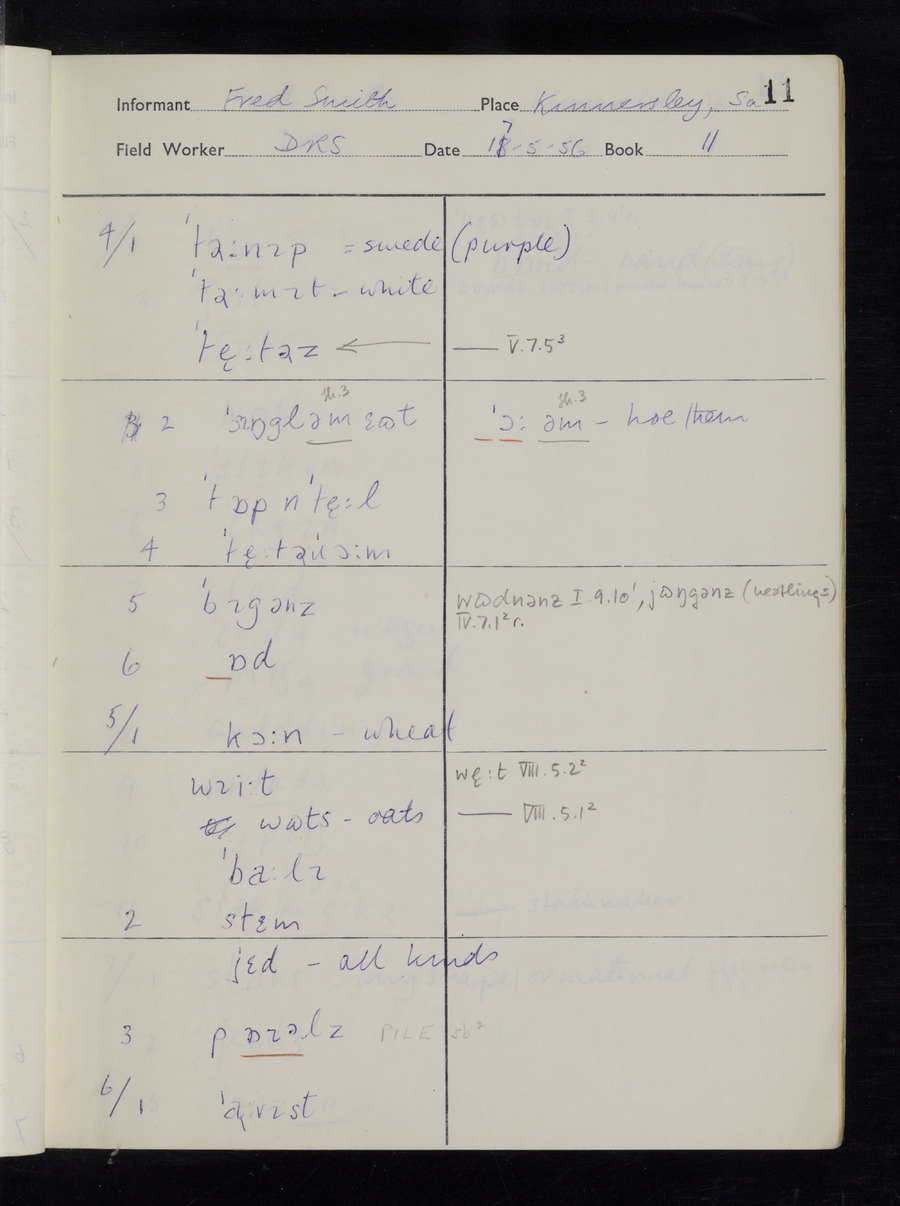 11
Informant Fred Smith Place Kinnersley, Sa
Field Worker DRS Date 17-5-56 Book 11
4/1 ˈtəːnɪp = swede (purple)
ˈtəːmɪt - white
ˈtę:təz ← — V.7.5³
2 ˈsɪŋgləm ɛɷt th.3 ˈɔː əm - hoe them th.3
3 ˈtɒp nˈtę:l
4
5 ˈbɪgənz wɷdnənz I.9.10¹, jɷŋgənz (nestlings)
IV.7.1²r.
6 ɒd
5/1 kɔːn - wheat
wɪiːt wę:t VIII.5.2²
wɷts - oats — VIII.5.1²
ˈbaːlɪ
2 stɛm
jɛd - all kinds
3 pɒɪəlz PILE sb²
6/1 ˈąːvɪst